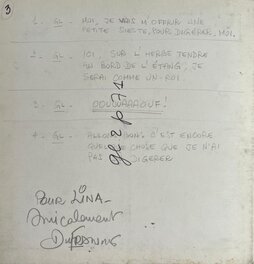 3
1 - GL - MOI, JE VAIS M'OFFRIR UNE
PETITE SIESTE, POUR DIGÉRER, MOI.
2 - GL - ICI, SUR L'HERBE TENDRE
AU BORD DE L'ÉTANG, JE
SERAI COMME UN ROI.
3 - GL - OOUUUAAAOUF!
4 - GL - ALLONS BON! C'EST ENCORE
QUELQUE CHOSE QUE JE N'AI
PAS DIGÉRER
POUR LINA -
Amicalement